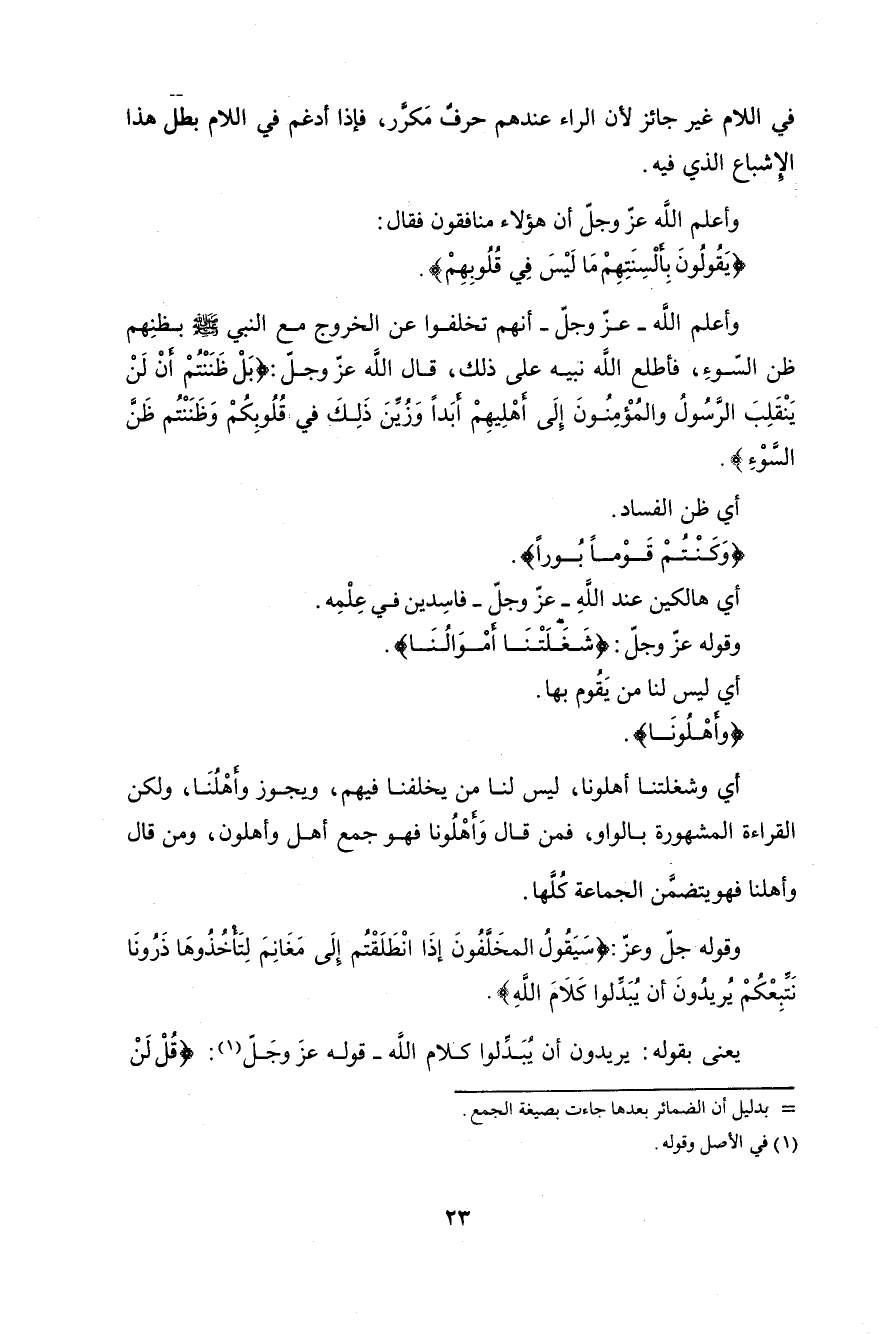 في اللام غير جائز لأن الراء عندهم حرفٌ مَكرَّر، فإذا أدغم في اللام بطل هذا
الإِشباع الذي فيه.
وأعلم اللَّه عزّ وجلّ أن هؤلاء منافقون فقال:
﴿يَقُولُونَ بِأَلْسِنَتِهِمْ مَا لَيْسَ فِي قُلُوبِهِمْ﴾.
وأعلم اللَّه ـ عزّ وجلّ ـ أنهم تخلفوا عن الخروج مع النبي ﷺ بظنِهم
ظن السّوءِ، فأطلع اللَّه نبيه على ذلك، قال اللَّه عزّ وجلّ: ﴿بَلْ ظَنَنْتُمْ أَنْ لَنْ
يَنْقَلِبَ الرَّسُولُ والمُؤْمِنُونَ إِلَى أَهْلِيهِمْ أَبَداً وَزُيِّنَ ذَلِكَ في قُلُوبِكُمْ وَظَنَنْتُم ظَنَّ
السَّوْءِ﴾.
أي ظن الفساد.
﴿وَكَنْتُمْ قَوْماً بُوراً﴾.
أي هالكين عند اللَّهِ ـ عزّ وجلّ ـ فاسِدين في عِلْمِه.
وقوله عزّ وجلّ: ﴿شَغَلَتْنَا أَمْوَالُنَا﴾.
أي ليس لنا من يَقُوم بها.
﴿وأَهْلُونَا﴾.
أي وشغلتنا أهلونا، ليس لنا من يخلفنا فيهم، ويجوز وأَهْلُنَا، ولكن
القراءة المشهورة بالواو، فمن قال وَأَهْلُونا فهو جمع أهل وأهلون، ومن قال
وأهلنا فهو يتضمَّن الجماعة كُلَّها.
وقوله جلّ وعزّ: ﴿سَيَقُولُ المخَلَّفُونَ إذَا انْطَلَقْتُم إِلَى مَغَانِمَ لِتَأْخُذُوهَا ذَرُونَا
نَتَّبِعْكُمْ يُرِيدُونَ أن يُبَدِّلوا كَلَامَ اللَّهِ﴾.
يعنى بقوله: يريدون أن يُبَدِّلوا كلام اللَّه ـ قوله عزَ وجَلّ(١): ﴿قُلْ لَنْ
= بدليل أن الضمائر بعدها جاءت بصيغة الجمع.
(١) في الأصل وقوله.
٢٣